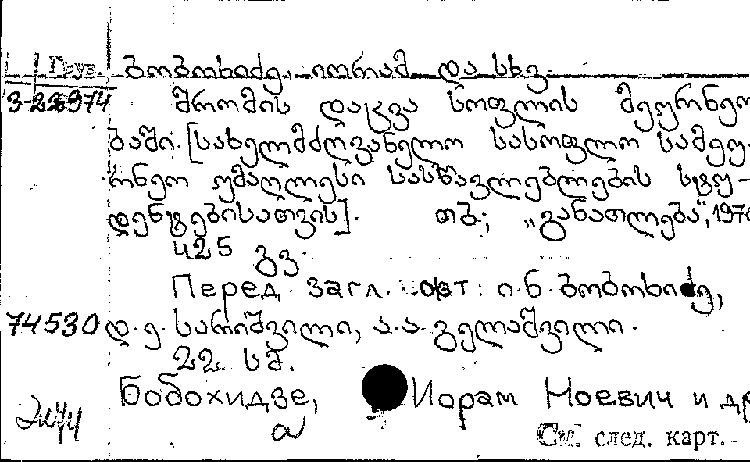 Груз. ბობოხიძე, იორამ და სხვ.
3-22974 შრომის დაცვა სოფლის მეურნეო
ბაში. [სახელმძღვანელო სასოფლო სამეუ-
რნეო უმაღლესი სასწავლებლების სტუ-
დენტებისათვის]. თბ., „განათლება", 197
425 გვ.
Перед загл. авт: ი. ნ. ბობოხიძე,
74530 დ. ე. სარიშვილი, ა. ა. გელაშვილი.
22 სმ.
Бобохидзе, Иорам Ноевич и др
См. след. карт.